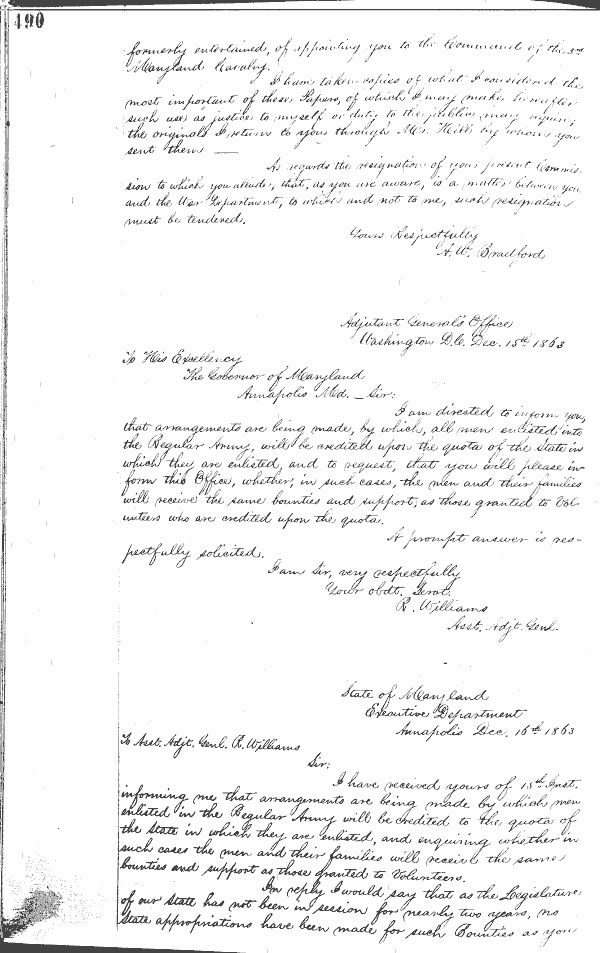 490
formerly entertained, of appointing you to the Command of the 3rd
Maryland Cavalry.
I have taken copies of what I considered the
most important of these Papers, of which I may make hereafter
such use as justice to myself or duty to the public may require;
the originals I return to you through Mr. Hill by whom you
sent them —
As regards the resignation of your present Commis-
sion to which you allude, that, as you are aware, is a matter between you
and the War Department, to which and not to me, such resignation
must be tendered.
Yours Respectfully
A. W. Bradford
Adjutant General's Office
Washington D.C. Dec. 15th 1863
To His Excellency
The Governor of Maryland
Annapolis Md. — Sir:
I am directed to inform you,
that arrangements are being made, by which, all men enlisted into
the Regular Army, will be credited upon the quota of the State in
which they are enlisted, and to request, that you will please in-
form this Office, whether, in such cases, the men and their families
will receive the same bounties and support, as those granted to Vol-
unteers who are credited upon the quota.
A prompt answer is res-
pectfully solicited.
I am Sir, very respectfully
Your obdt. Servt.
R. Williams
Asst. Adjt. Genl.
State of Maryland
Executive Department
Annapolis Dec. 16th 1863
To Asst. Adjt. Genl. R. Williams
Sir:
I have received yours of 15th Inst.
informing me that arrangements are being made by which men
enlisted in the Regular Army will be credited to the quota of
the State in which they are enlisted, and enquiring whether in
such cases the men and their families will receive the same
bounties and support as those granted to Volunteers.
In reply I would say that as the Legislature
of our State has not been in session for nearly two years, no
State appropriations have been made for such Bounties as you